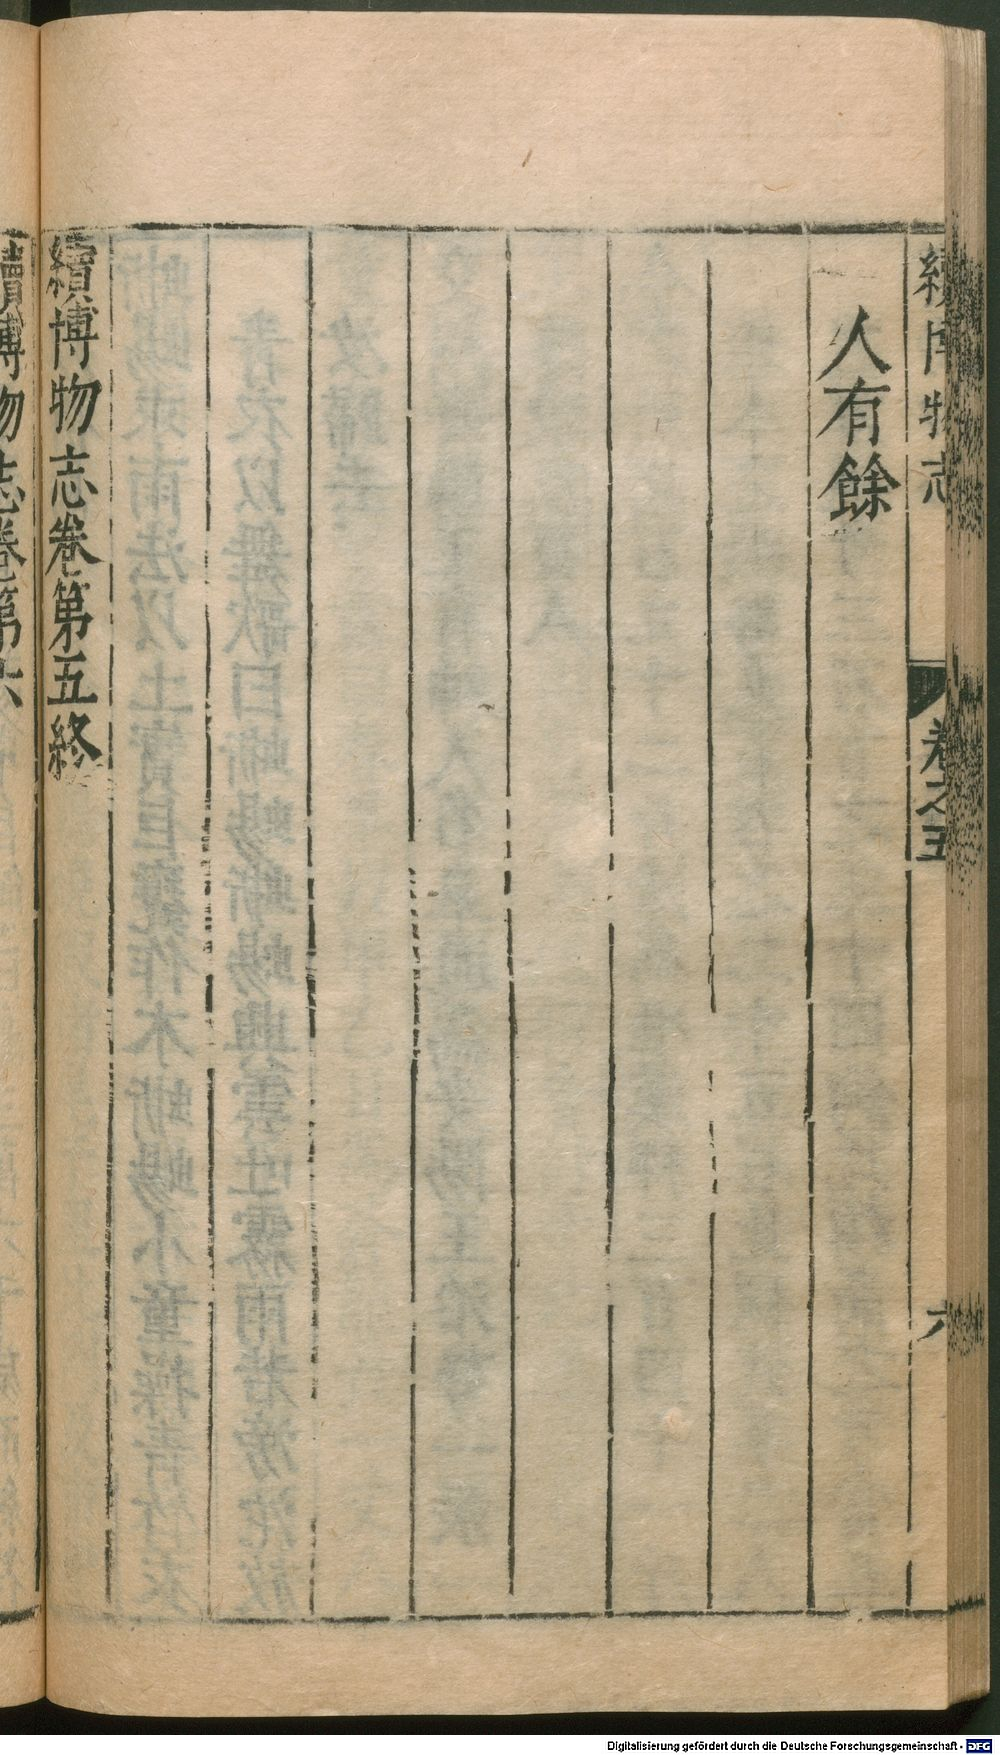 續博物志
卷之五
六
人有餘
續博物志卷第五終
續博物志卷第六
Digitalisierung gefördert durch die Deutsche Forschungsgemeinschaft - DFG